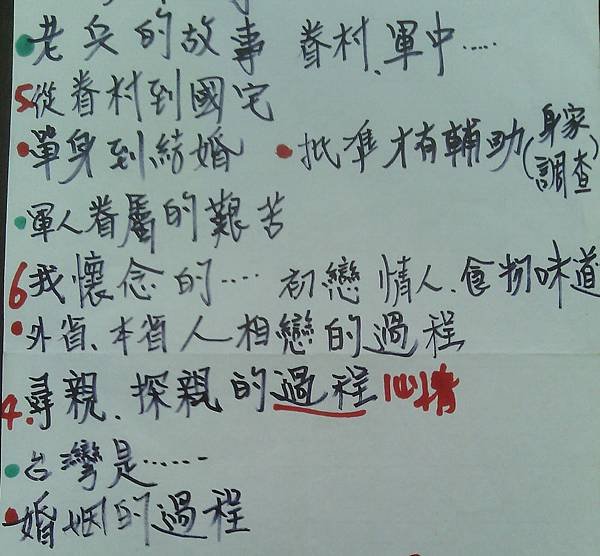 •老兵的故事 眷村、軍中……
5從眷村到國宅
•單身到結婚 •批准才有輔助(身家調查)
•軍人眷屬的艱苦
6我懷念的…… 初戀情人、食物味道
•外省、本省人相戀的過程
4.尋親、探親的過程 心情
•台灣是……
•婚姻的過程